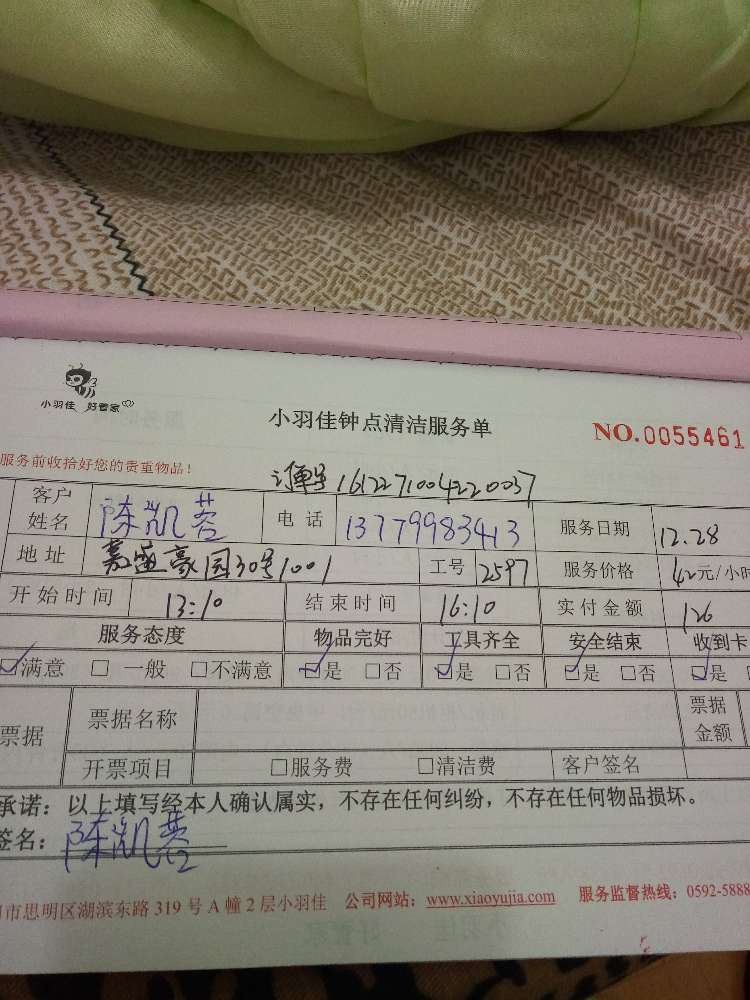 小羽佳 好管家
小羽佳钟点清洁服务单
NO.0055461
服务前收拾好您的贵重物品!
订单号1612271004220037
客户姓名 陈凯蓉 电话 13779983413 服务日期 12.28
地址 嘉盛豪园30号1001 工号 2597 服务价格 42元/小时
开始时间 13:10 结束时间 16:10 实付金额 126
服务态度 物品完好 工具齐全 安全结束 收到卡
☑满意 □一般 □不满意 ☑是 □否 ☑是 □否 ☑是 □否 ☑是
票据 票据名称 票据金额
开票项目 □服务费 □清洁费 客户签名
承诺:以上填写经本人确认属实,不存在任何纠纷,不存在任何物品损坏。
签名:陈凯蓉
市思明区湖滨东路319号A幢2层小羽佳 公司网站:www.xiaoyujia.com 服务监督热线:0592-5888